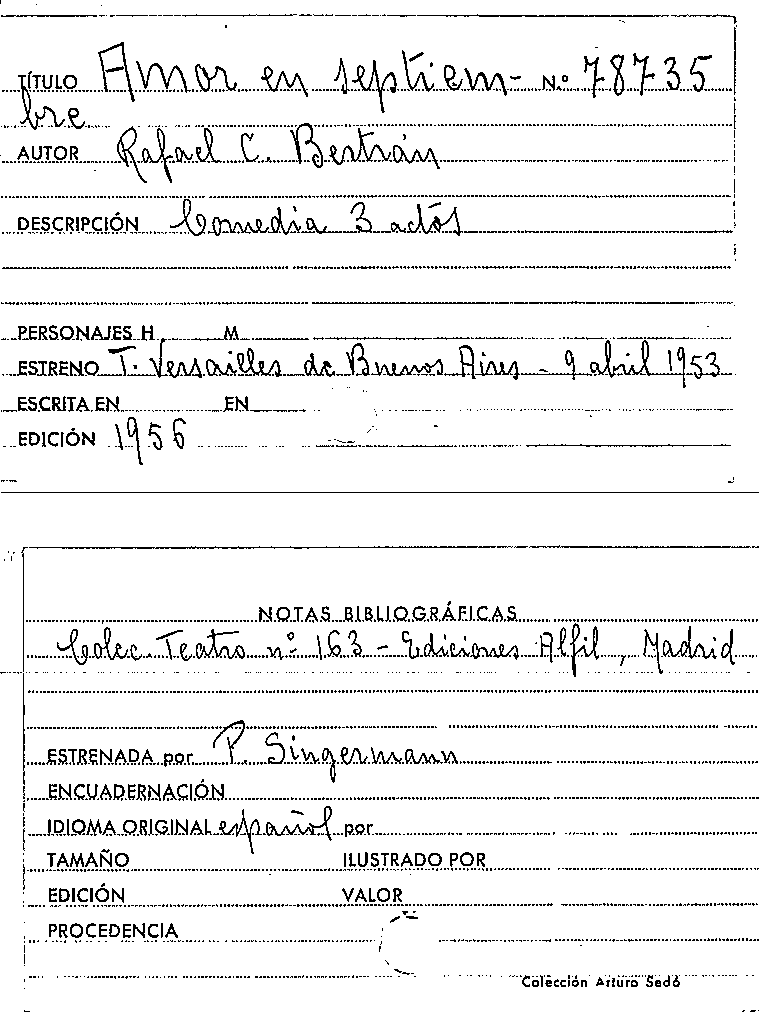 TÍTULO Amor en septiem- N.º 78735
bre
AUTOR Rafael C. Bertrán
DESCRIPCIÓN Comedia 3 actos
PERSONAJES H M
ESTRENO T. Versailles de Buenos Aires - 9 abril 1953
ESCRITA EN EN
EDICIÓN 1956
NOTAS BIBLIOGRÁFICAS
Colec. Teatro nº 163 - Ediciones Alfil, Madrid
ESTRENADA por P. Singermann
ENCUADERNACIÓN
IDIOMA ORIGINAL español por
TAMAÑO ILUSTRADO POR
EDICIÓN VALOR
PROCEDENCIA
Colección Arturo Sedó